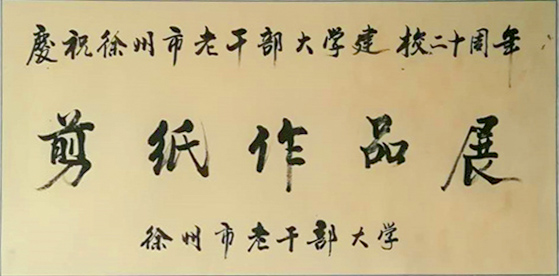 慶祝徐州市老干部大学建校二十周年
剪纸作品展
徐州市老干部大学